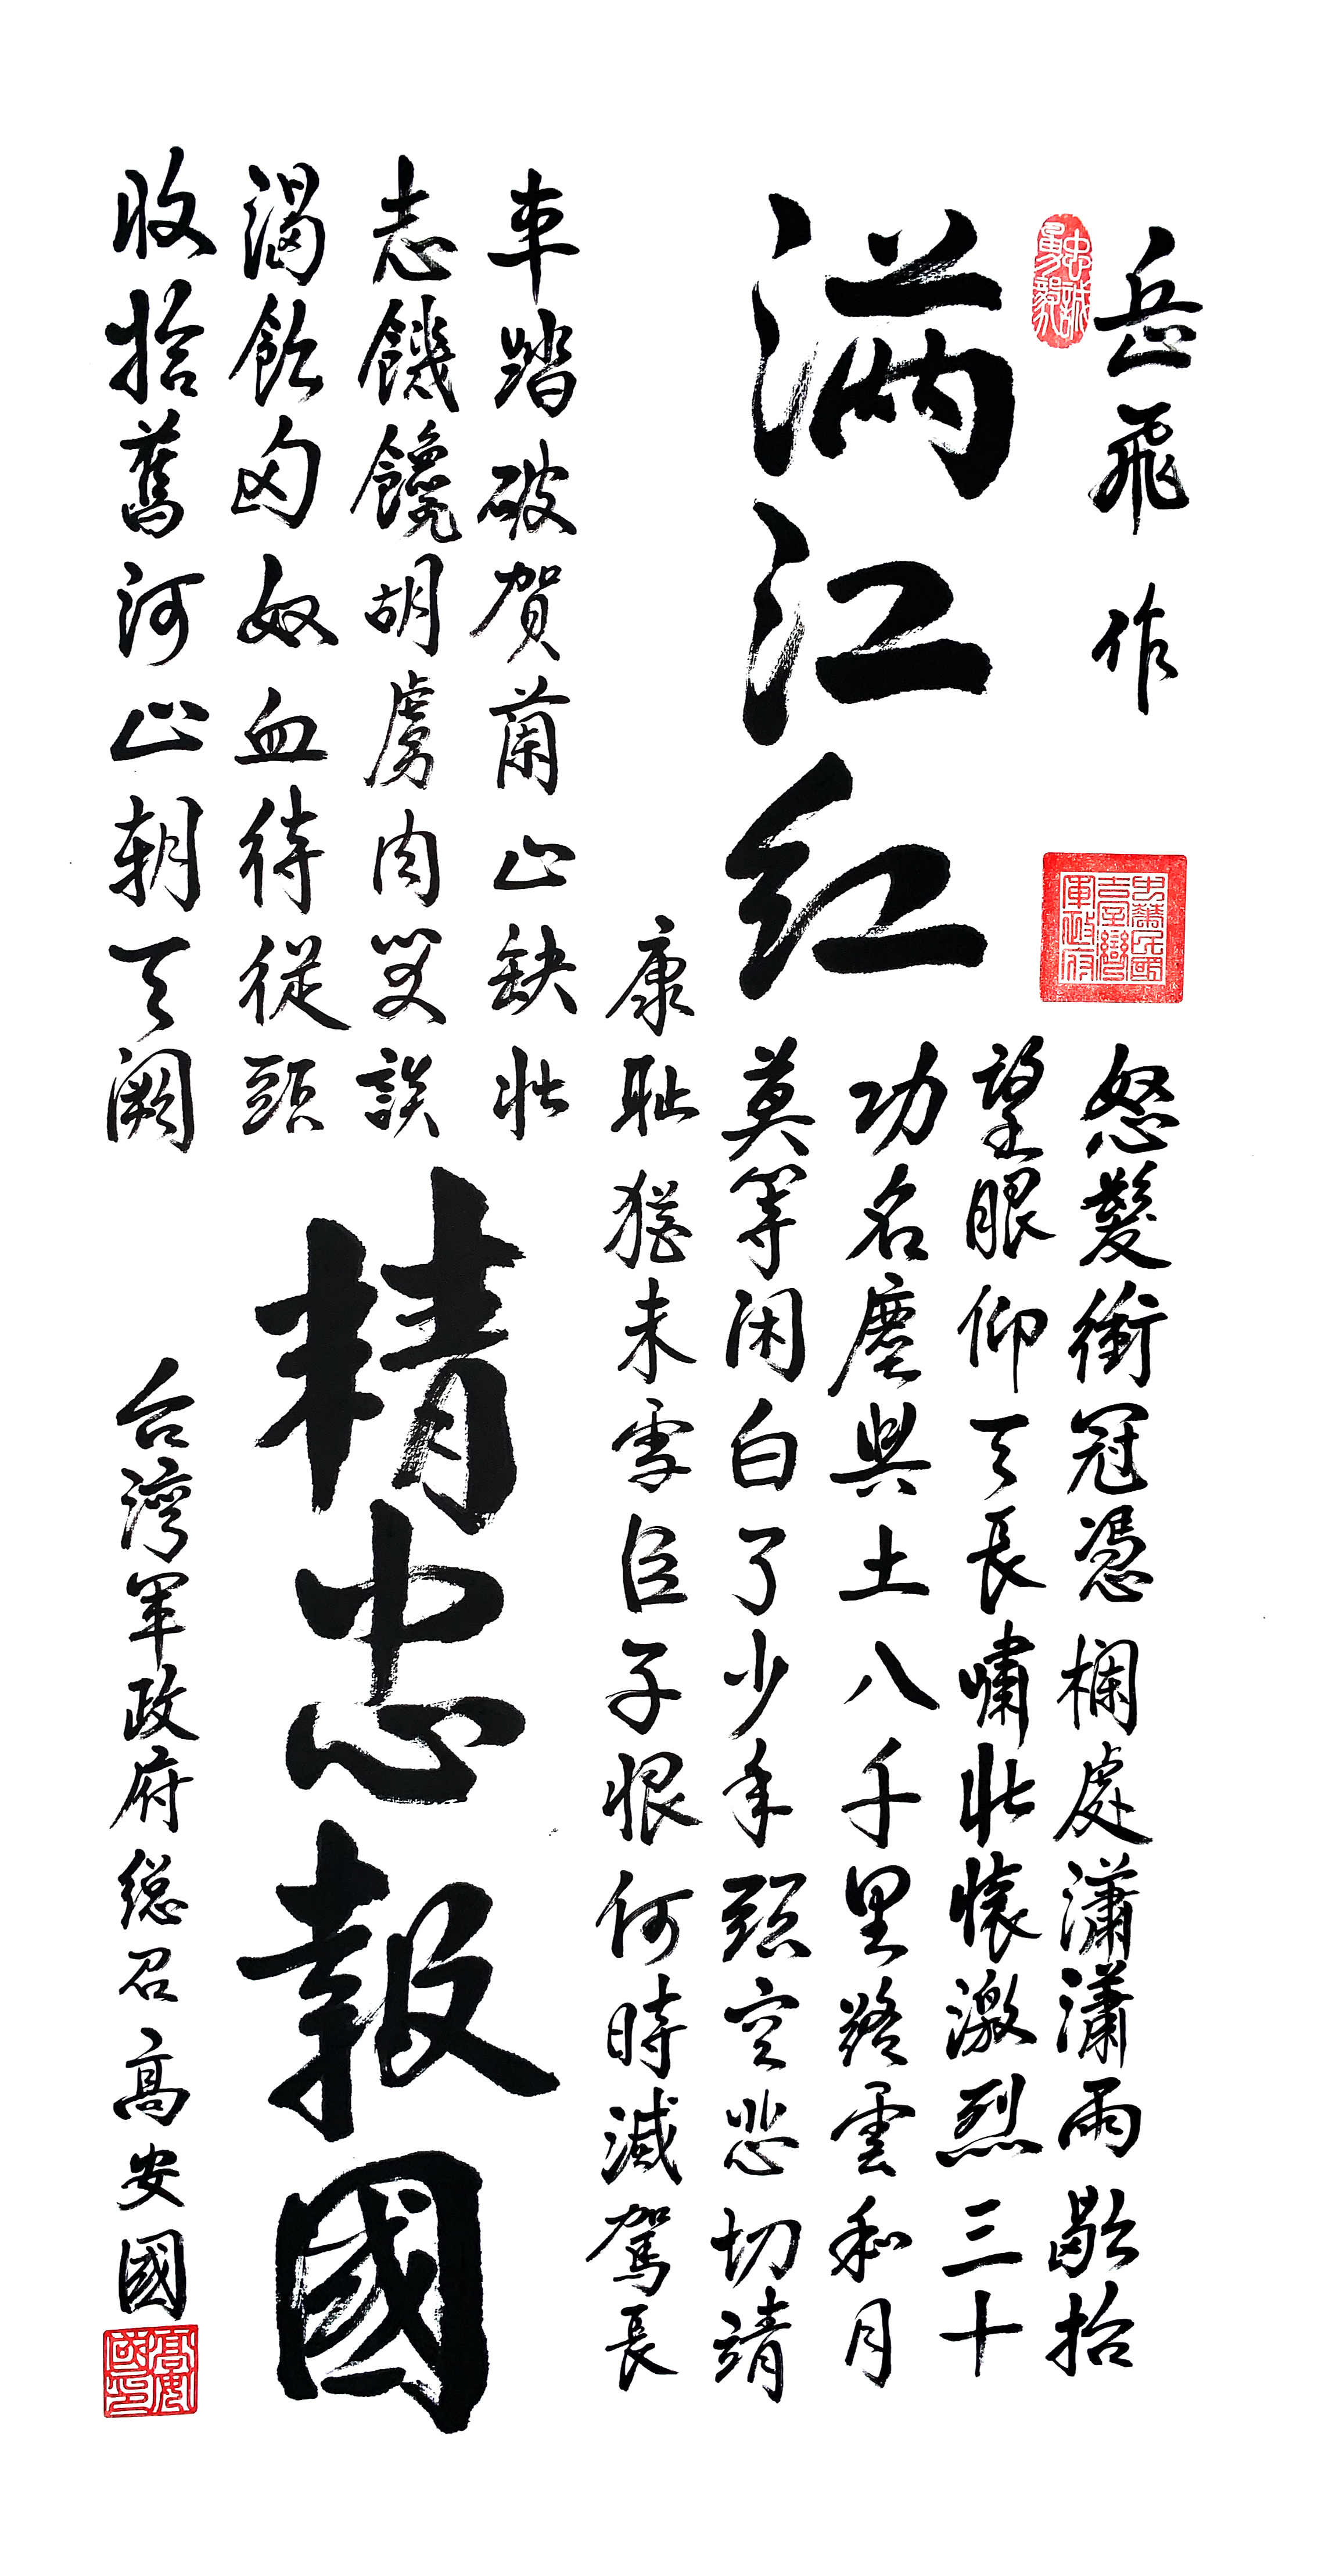 岳飛 作
忠誠勇毅
满江红
中華民國
臺灣
軍政府
怒髮衝冠憑欄處瀟瀟雨歇抬
望眼仰天長嘯壯懷激烈三十
功名塵與土八千里路雲和月
莫等闲白了少年頭空悲切靖
康耻猶未雪臣子恨何時滅駕長
車踏破賀蘭山缺壯
志饑饞胡虜肉笑談
渴飲匈奴血待從頭
收拾舊河山朝天闕
精忠報國
台灣軍政府總召 高安國
高安國印